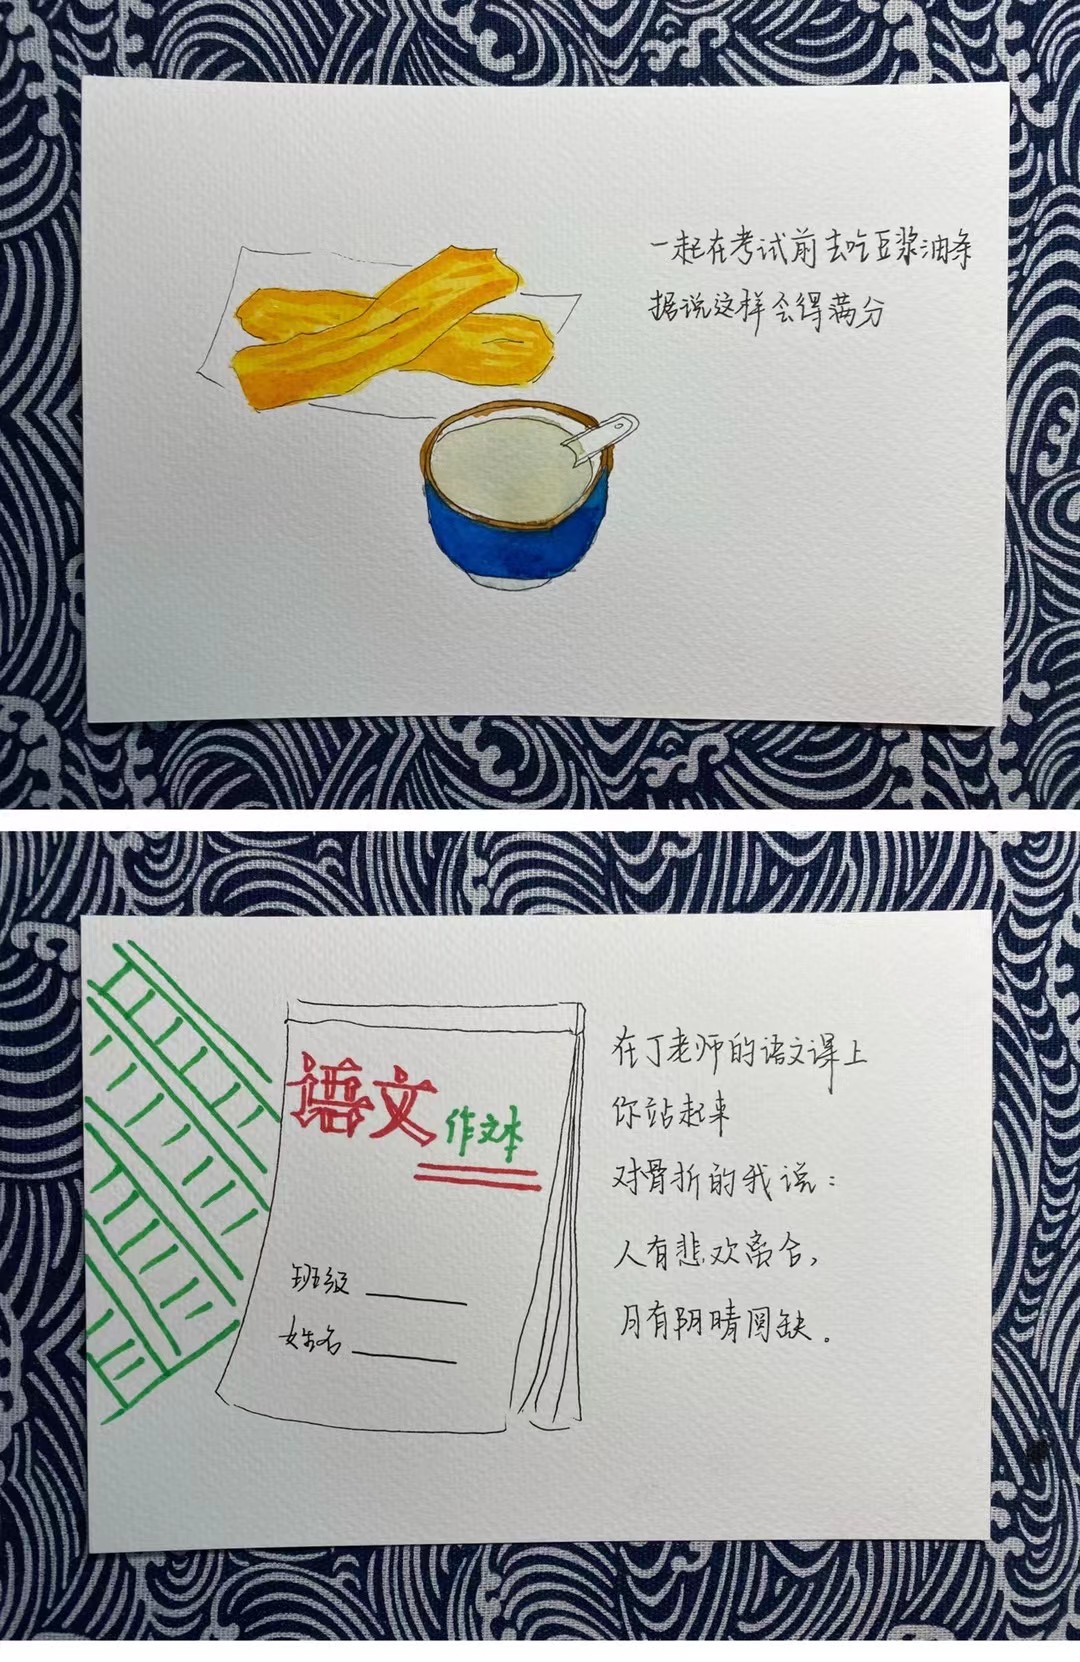 一起在考试前去吃豆浆油条
据说这样会得满分
语文
作文本
班级
姓名
在丁老师的语文课上
你站起来
对骨折的我说：
人有悲欢离合，
月有阴晴圆缺。